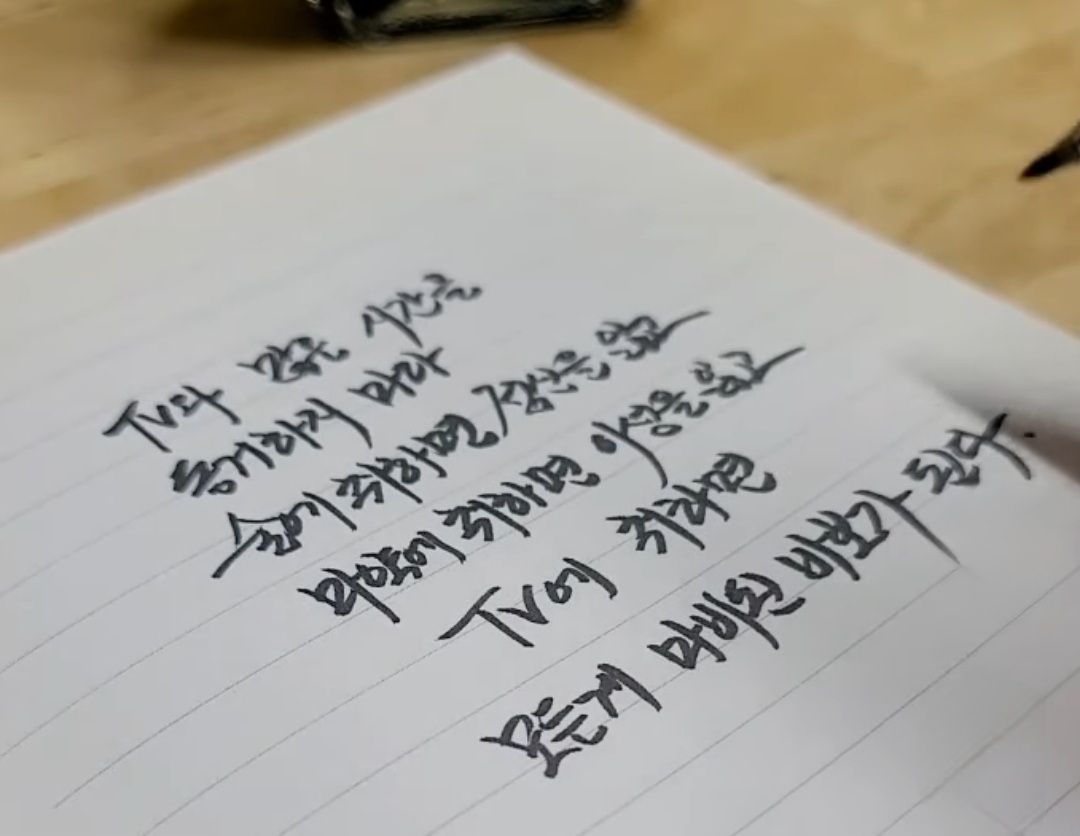 TV와 많은 시간을
동거하지 마라
술에 취하면 정신을 잃고
마약에 취하면 이성을 잃고
TV에 취하면
모든게 마비된 바보가 된다.